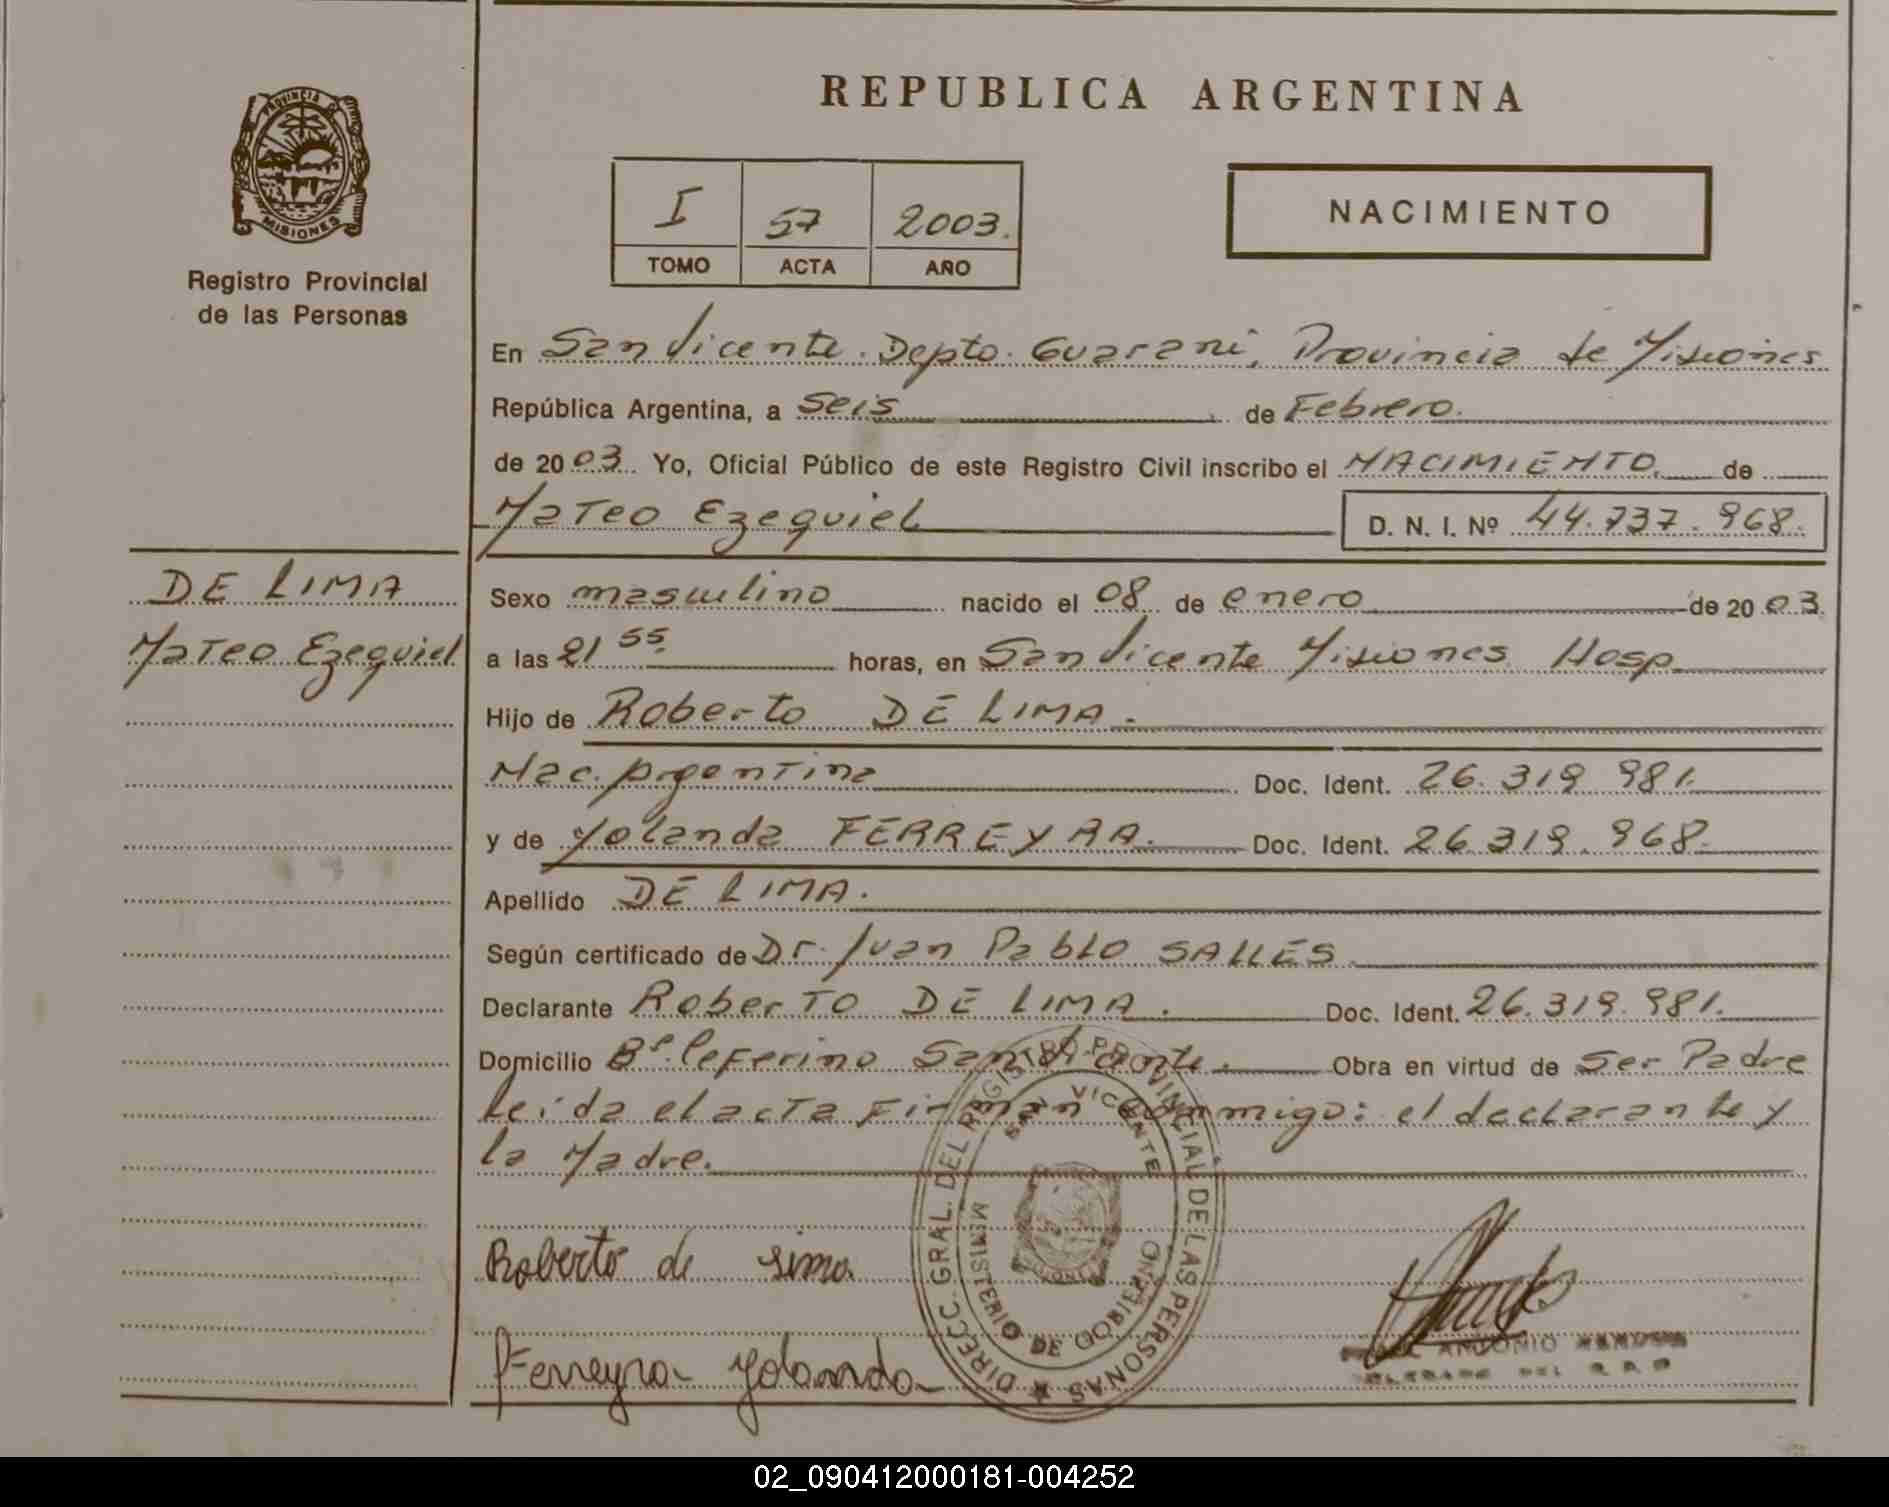 REPUBLICA ARGENTINA
PROVINCIA DE
MISIONES
Registro Provincial
de las Personas
I 57 2003.
TOMO ACTA AÑO
NACIMIENTO
En San Vicente. Depto. Guarani, Provincia de Misiones
República Argentina, a Seis de Febrero.
de 2003 Yo, Oficial Público de este Registro Civil inscribo el NACIMIENTO. de
Mateo Ezequiel D. N. I. Nº 44.737.968.
DE LIMA
Mateo Ezequiel
Sexo masculino nacido el 08 de enero de 2003
a las 21 55. horas, en San Vicente Misiones Hosp.
Hijo de Roberto DE LIMA.
Nac. Argentina Doc. Ident. 26.319.981.
y de Yolanda FERREYRA. Doc. Ident. 26.319.968.
Apellido DE LIMA.
Según certificado de Dr. Juan Pablo SALLES.
Declarante Roberto DE LIMA. Doc. Ident. 26.319.981.
Domicilio Bº. Ceferino San Vicente. Obra en virtud de Ser Padre
Leida el acta Firman conmigo: el declarante y
la Madre.
Roberto de Lima
Ferreyra Yolanda
DIRECC. GRAL. DEL REGISTRO PROVINCIAL DE LAS PERSONAS
SAN VICENTE
MINISTERIO DE GOBIERNO
MISIONES
ANTONIO
02_090412000181-004252